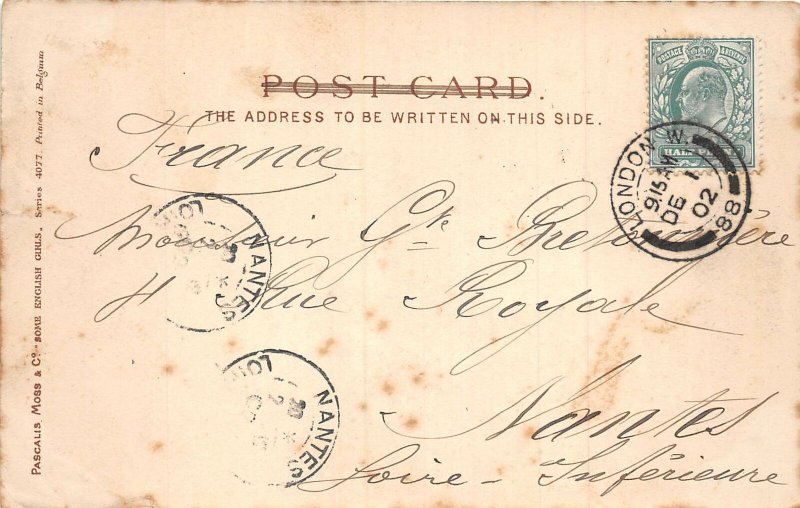 POST CARD.
THE ADDRESS TO BE WRITTEN ON THIS SIDE.
POSTAGE & REVENUE
HALF PENNY
LONDON W.
9 15 AM
DE 1
02
88
France
Monsieur Gte
4 Rue Royale
Nantes
Loire-Inférieure
NANTES
NANTES
PASCALIS, MOSS & Co. "SOME ENGLISH GIRLS." Series 4077. Printed in Belgium